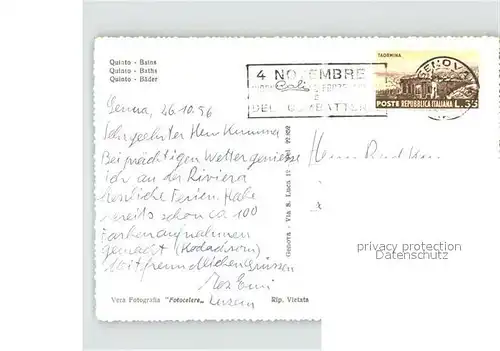 Quinto - Bains
Quinto - Baths
Quinto - Bäder
4 NOVEMBRE
DEL COMBATTEN
TAORMINA
GENOVA
POSTE REPUBBLICA ITALIANA L. 35
Genua, 26.10.56
Sehr geehrter Herr Kummer
Bei prächtigem Wetter geniesse
ich an der Riviera
herrliche Ferien. Habe
bereits schon ca. 100
Farbenaufnahmen
gemacht (Kodachrom)
Mit freundlichen Grüssen
Luzern
Herrn
Genova - Via S. Luca 12
privacy protection
Datenschutz
Vera Fotografia "Fotocelere" Rip. Vietata